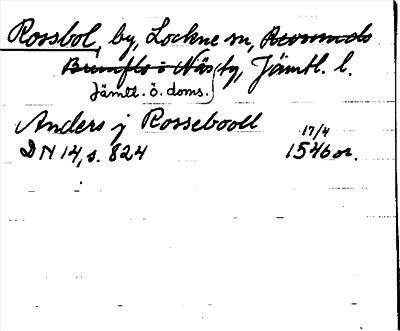 Rossbol, by, Lockne sn, Revsunds
Brunflo o Näs ty, Jämtl. l.
Jämtl. ö. doms.
Anders j Rossebooll 17/4
DN 14, s. 824 1546 or.